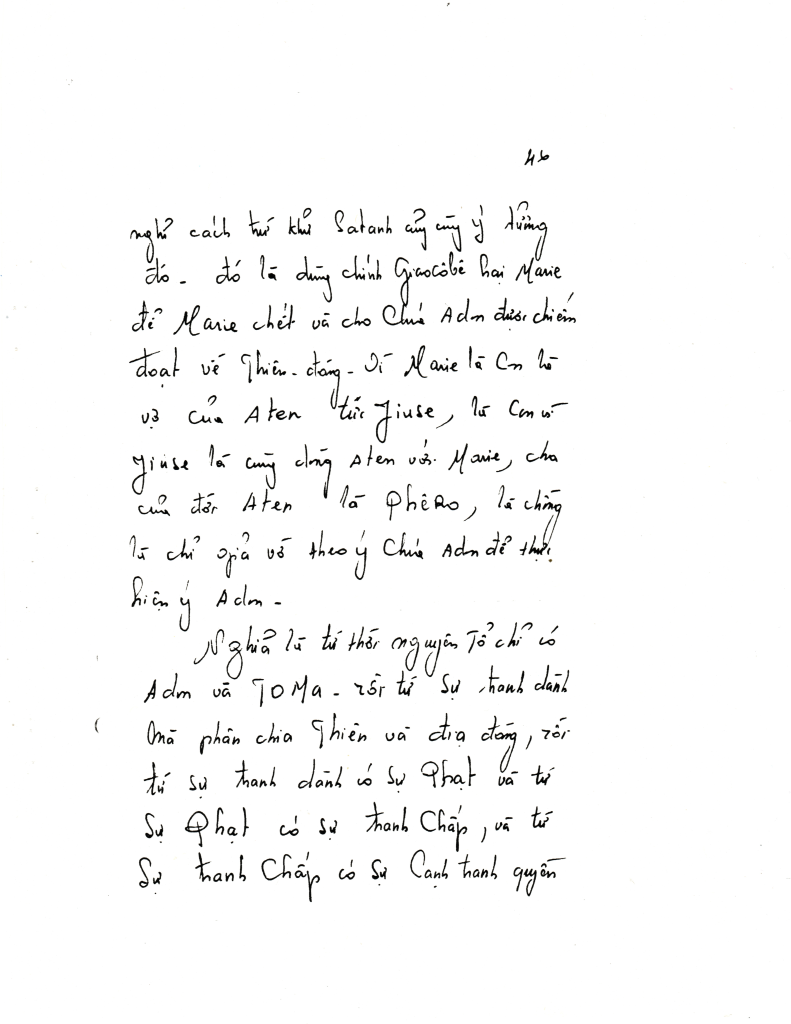 46
nghĩ cách trừ khử Satanh cũng ý tưởng
đó - đó là dùng chính Giacôbê hại Marie
để Marie chết và cho Chúa Adm được chiếm
đoạt về Thiên-đáng - Vì Marie là Con là
vợ của Aten tức Jiuse, là Con
Jiuse là cùng dòng Aten với Marie, cha
của đời Aten là PhêRo, là chồng
là chỉ giả vờ theo ý Chúa Adm để thực
hiện ý Adm -
Nghĩa là từ thời nguyên Tổ chỉ có
Adm và TOMa - rồi từ Sự tranh dành
Mà phân chia Thiên và địa đáng, rồi
từ sự tranh dành có sự Phạt và từ
Sự Phạt có sự tranh Chấp, và từ
Sự tranh Chấp có sự Cạnh tranh quyền